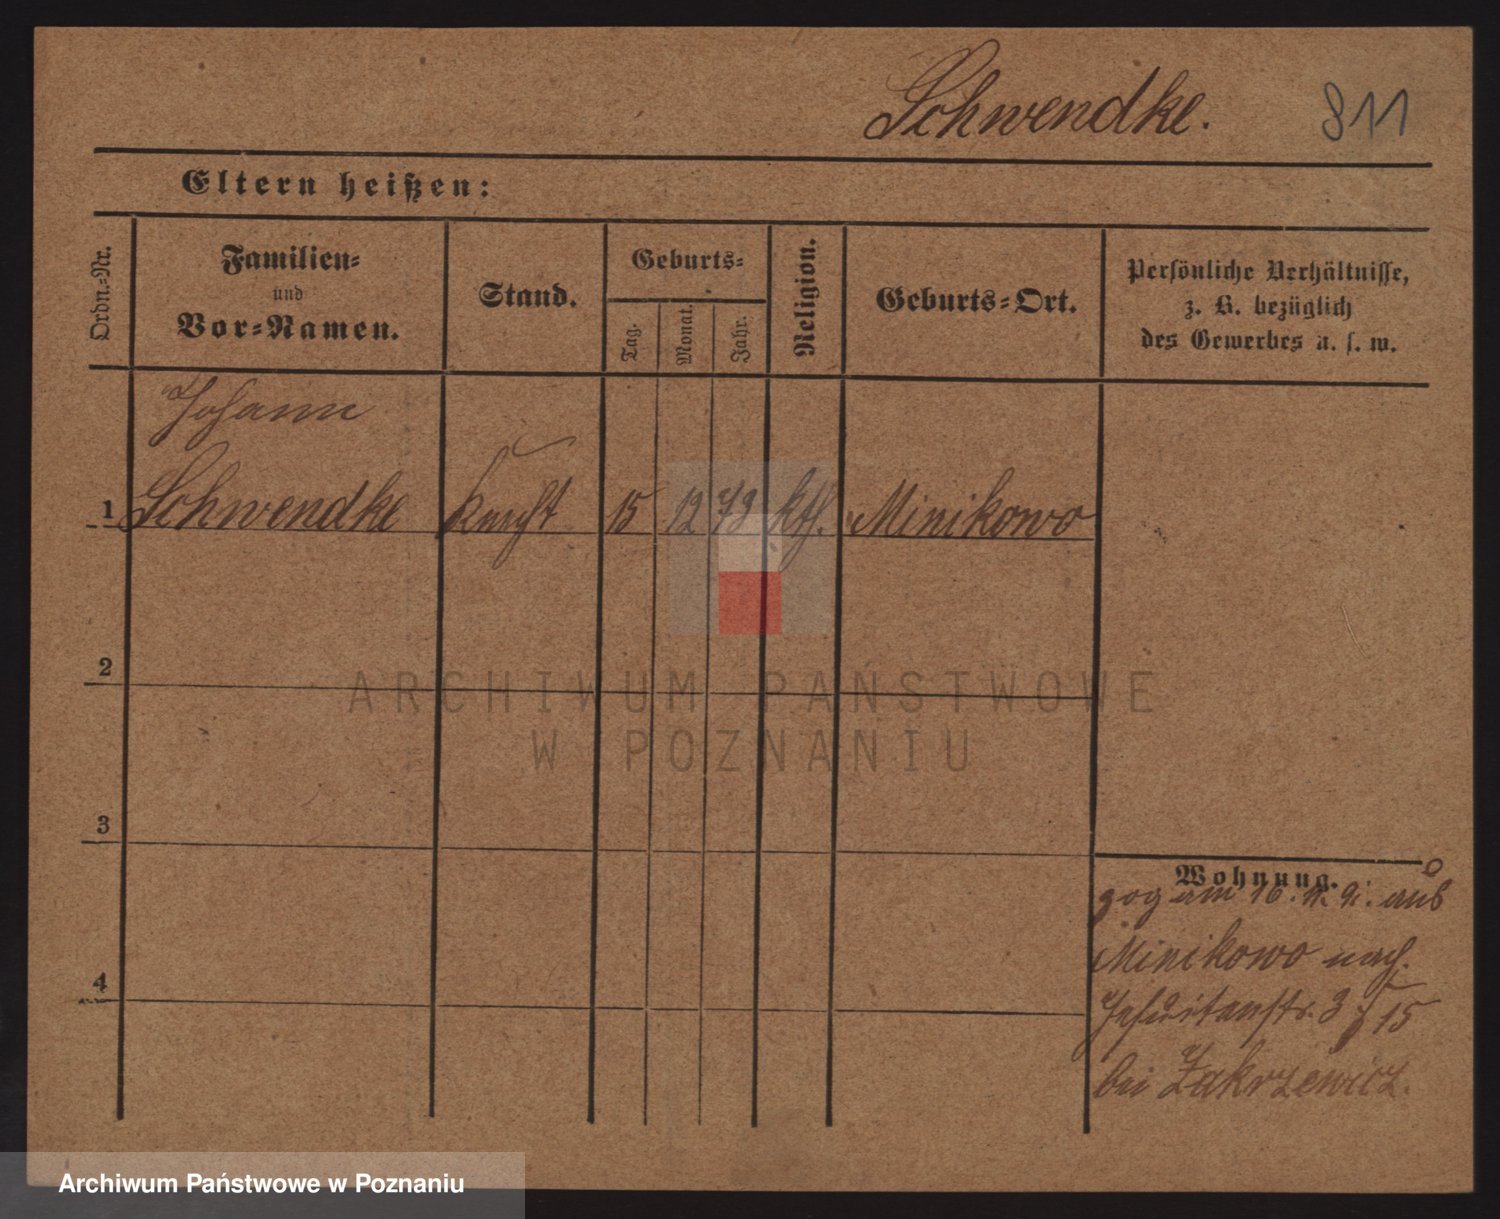 Schwendke. 811
Eltern heißen:
Ordn.-Nr.
Familien-
und
Vor-Namen.
Stand.
Geburts-
Tag.
Monat.
Jahr.
Religion.
Geburts-Ort.
Persönliche Verhältnisse,
z. B. bezüglich
des Gewerbes u. s. w.
Johann
1 Schwendke Knecht 15 12 73 kth. Minikowo
2
3
4
Wohnung.
zog am 16. aus
Minikowo nach
Jesuitenstr. 3 15
bei Zakrzewicz.
ARCHIWUM PAŃSTWOWE
W POZNANIU
Archiwum Państwowe w Poznaniu